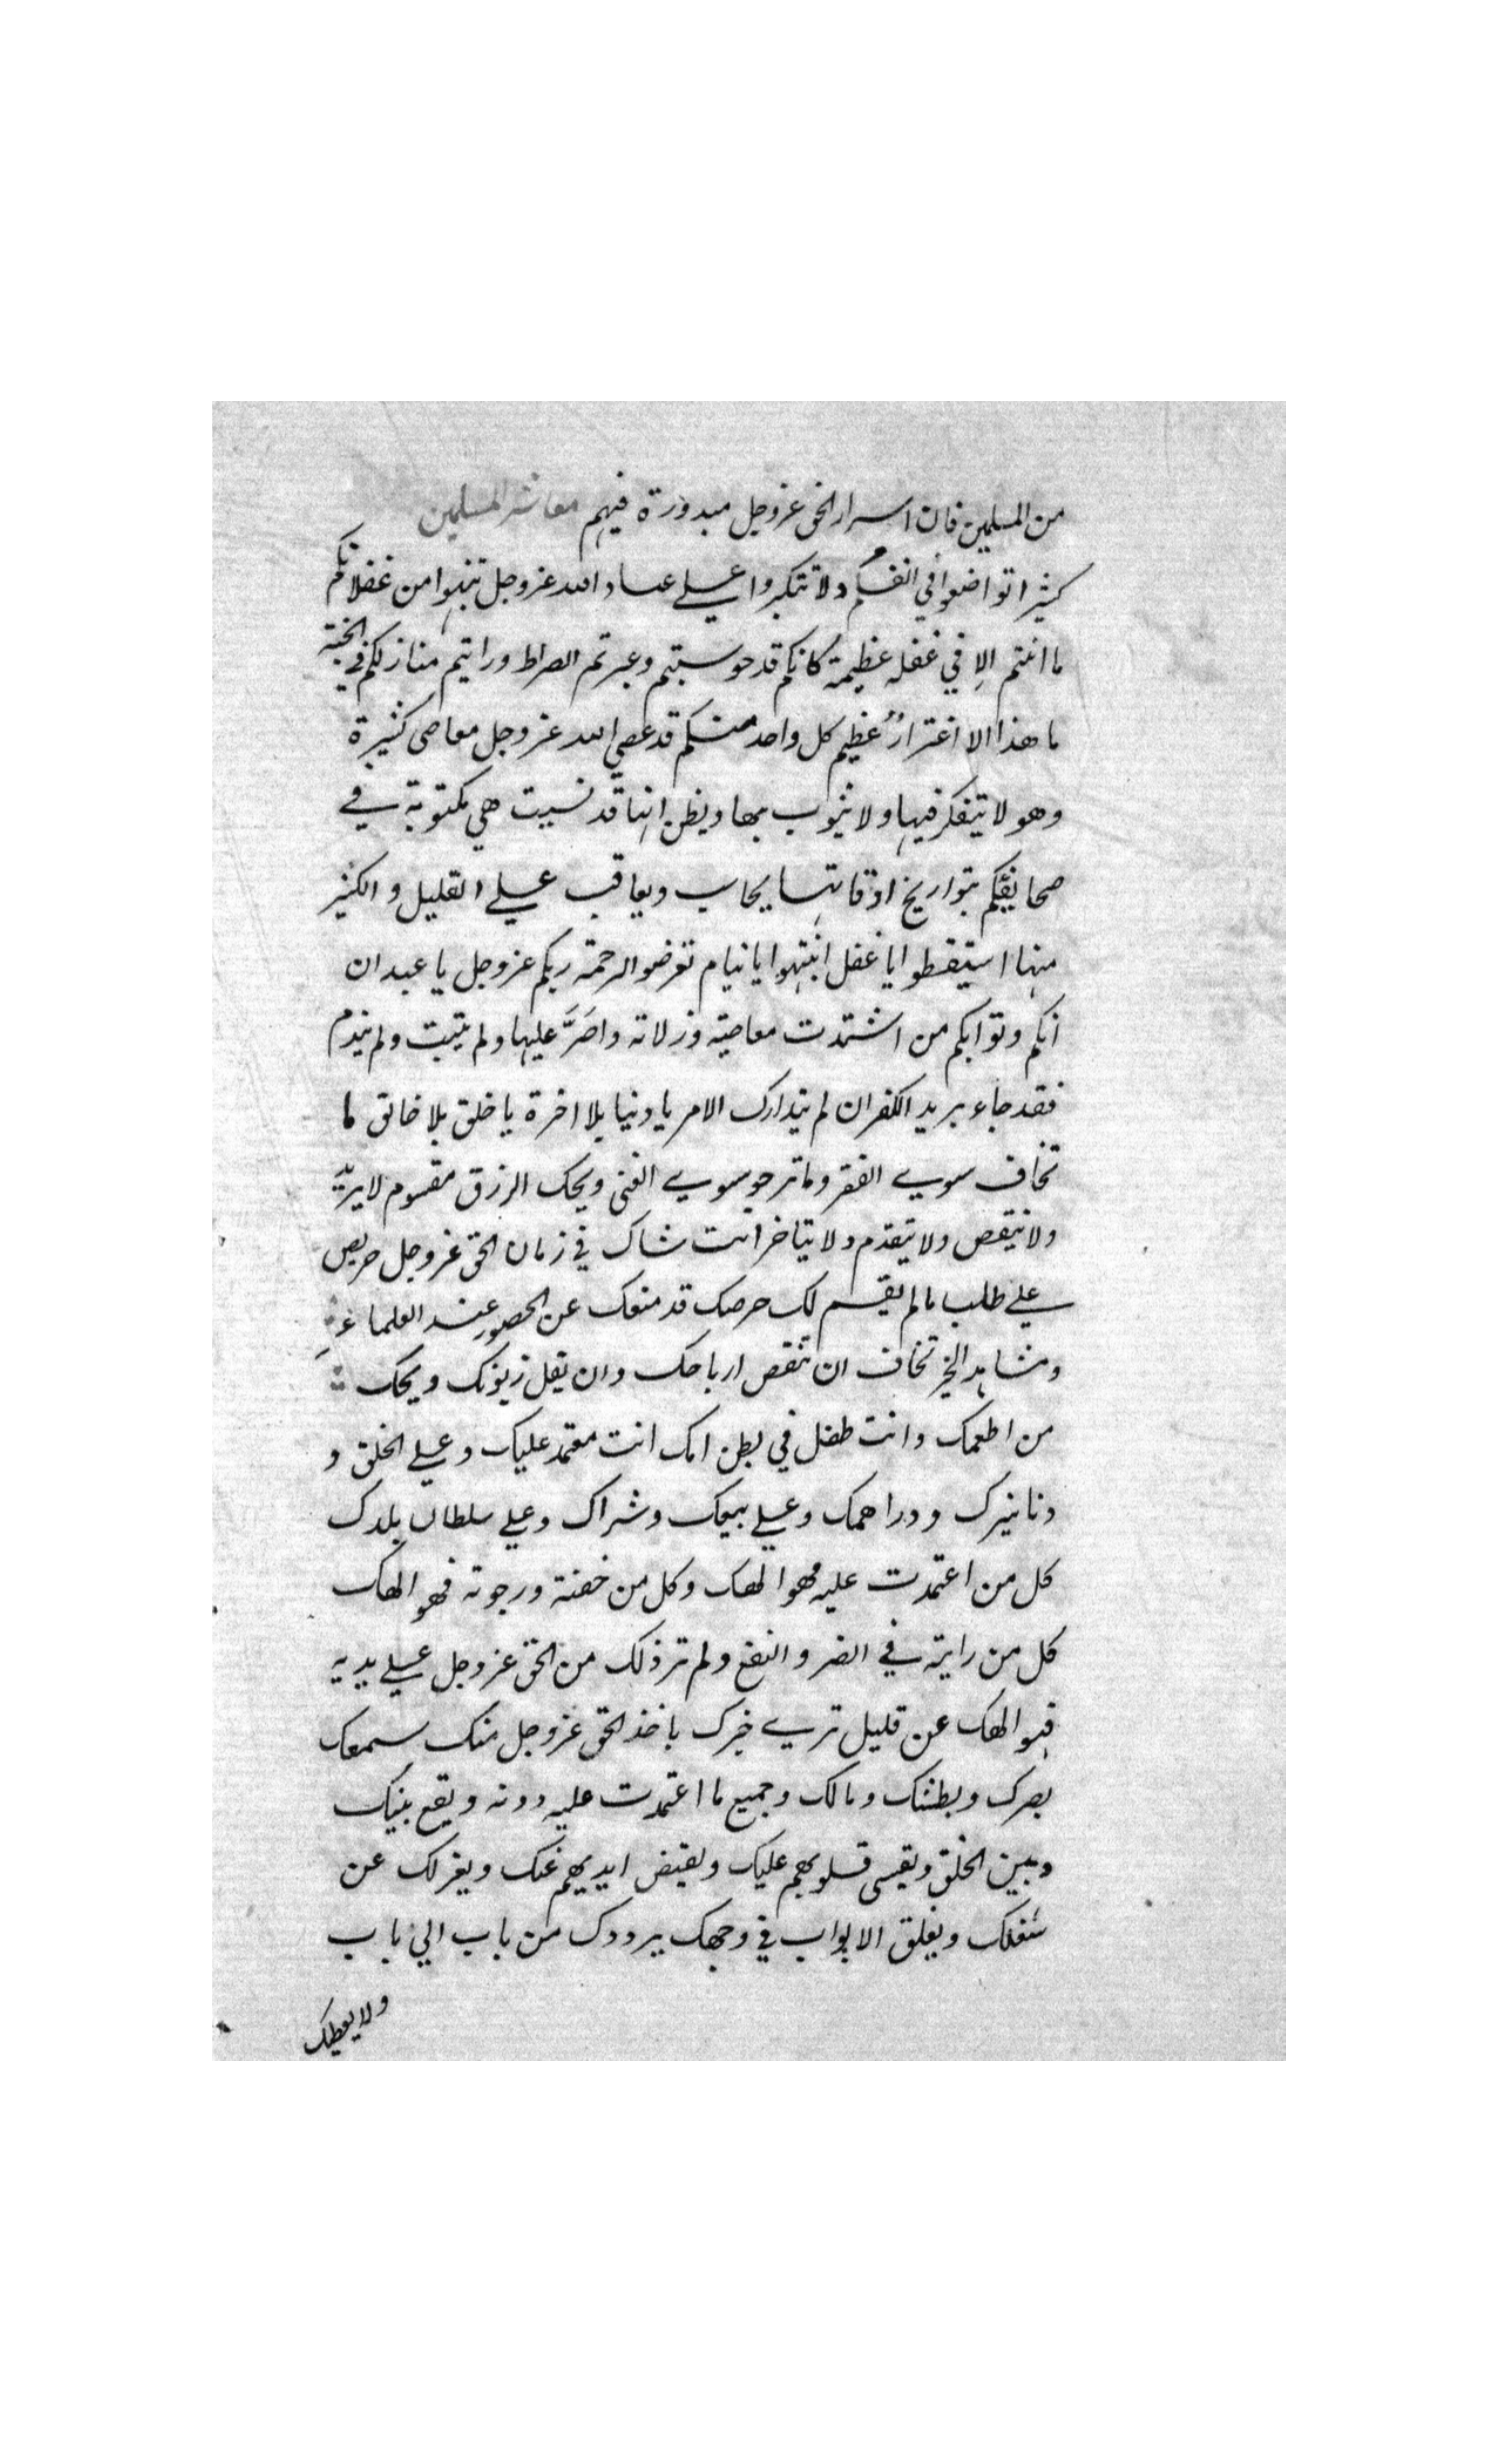 من المسلمين فان اسرار الحق عز وجل مبدورة فيهم معاشر المسلمين
كثيرا تواضعوا في انفسكم ولا تتكبروا علي عباد الله عز وجل تنبهوا من غفلاتكم
ما انتم الا في غفلة عظيمة كانكم قد حوسبتم وعبرتم الصراط ورايتم منازلكم في الجنة
ما هذا الا اغترارٌ عظيم كل واحد منكم قد عصي الله عز وجل معاصى كثيرة
وهو لا يتفكر فيها ولا يتوب بها ويظن انها قد نسيت هي مكتوبة في
صحايفكم بتواريخ اوقاتها يحاسب ويعاقب علي القليل والكثير
منها استيقظوا يا غفل انتبهوا يا نيام تعرضوا لرحمة ربكم عز وجل يا عبد ان
انكم وتوابكم من اشتدت معاصيه وزلاته واصَرَّ عليها ولم يتب ولم يندم
فقد جاء بريد الكفر ان لم يتدارك الامر يا دنيا بلا اخرة يا خلق بلا خالق ما
تخاف سوي الفقر وما ترجو سوي الغنى ويحك الرزق مقسوم لا يزيد
ولا ينقص ولا يتقدم ولا يتاخر انت شاك في زمان الحق عز وجل حريص
علي طلب ما لم يقسم لك حرصك قد منعك عن الحضور عند العلماء
ومشاهد الخير تخاف ان تنقص ارباحك وان يقل زبونك ويحك
من اطعمك وانت طفل في بطن امك انت معتمد عليك وعلي الخلق و
دنانيرك ودراهمك وعلي بيعك وشراك وعلي سلطان بلدك
كل من اعتمدت عليه فهو الهك وكل من خفته ورجوته فهو الهك
كل من رايته في الضر والنفع ولم تر ذلك من الحق عز وجل علي يديه
فهو الهك عن قليل تري خبرك ياخذ الحق عز وجل منك سمعك
بصرك وبطشك ومالك وجميع ما اعتمدت عليه دونه ويقع بينك
وبين الخلق ويقسى قلوبهم عليك ويقبض ايديهم عنك ويعزلك عن
شغلك ويغلق الابواب في وجهك يرددك من باب الي باب
ولا يعطيك